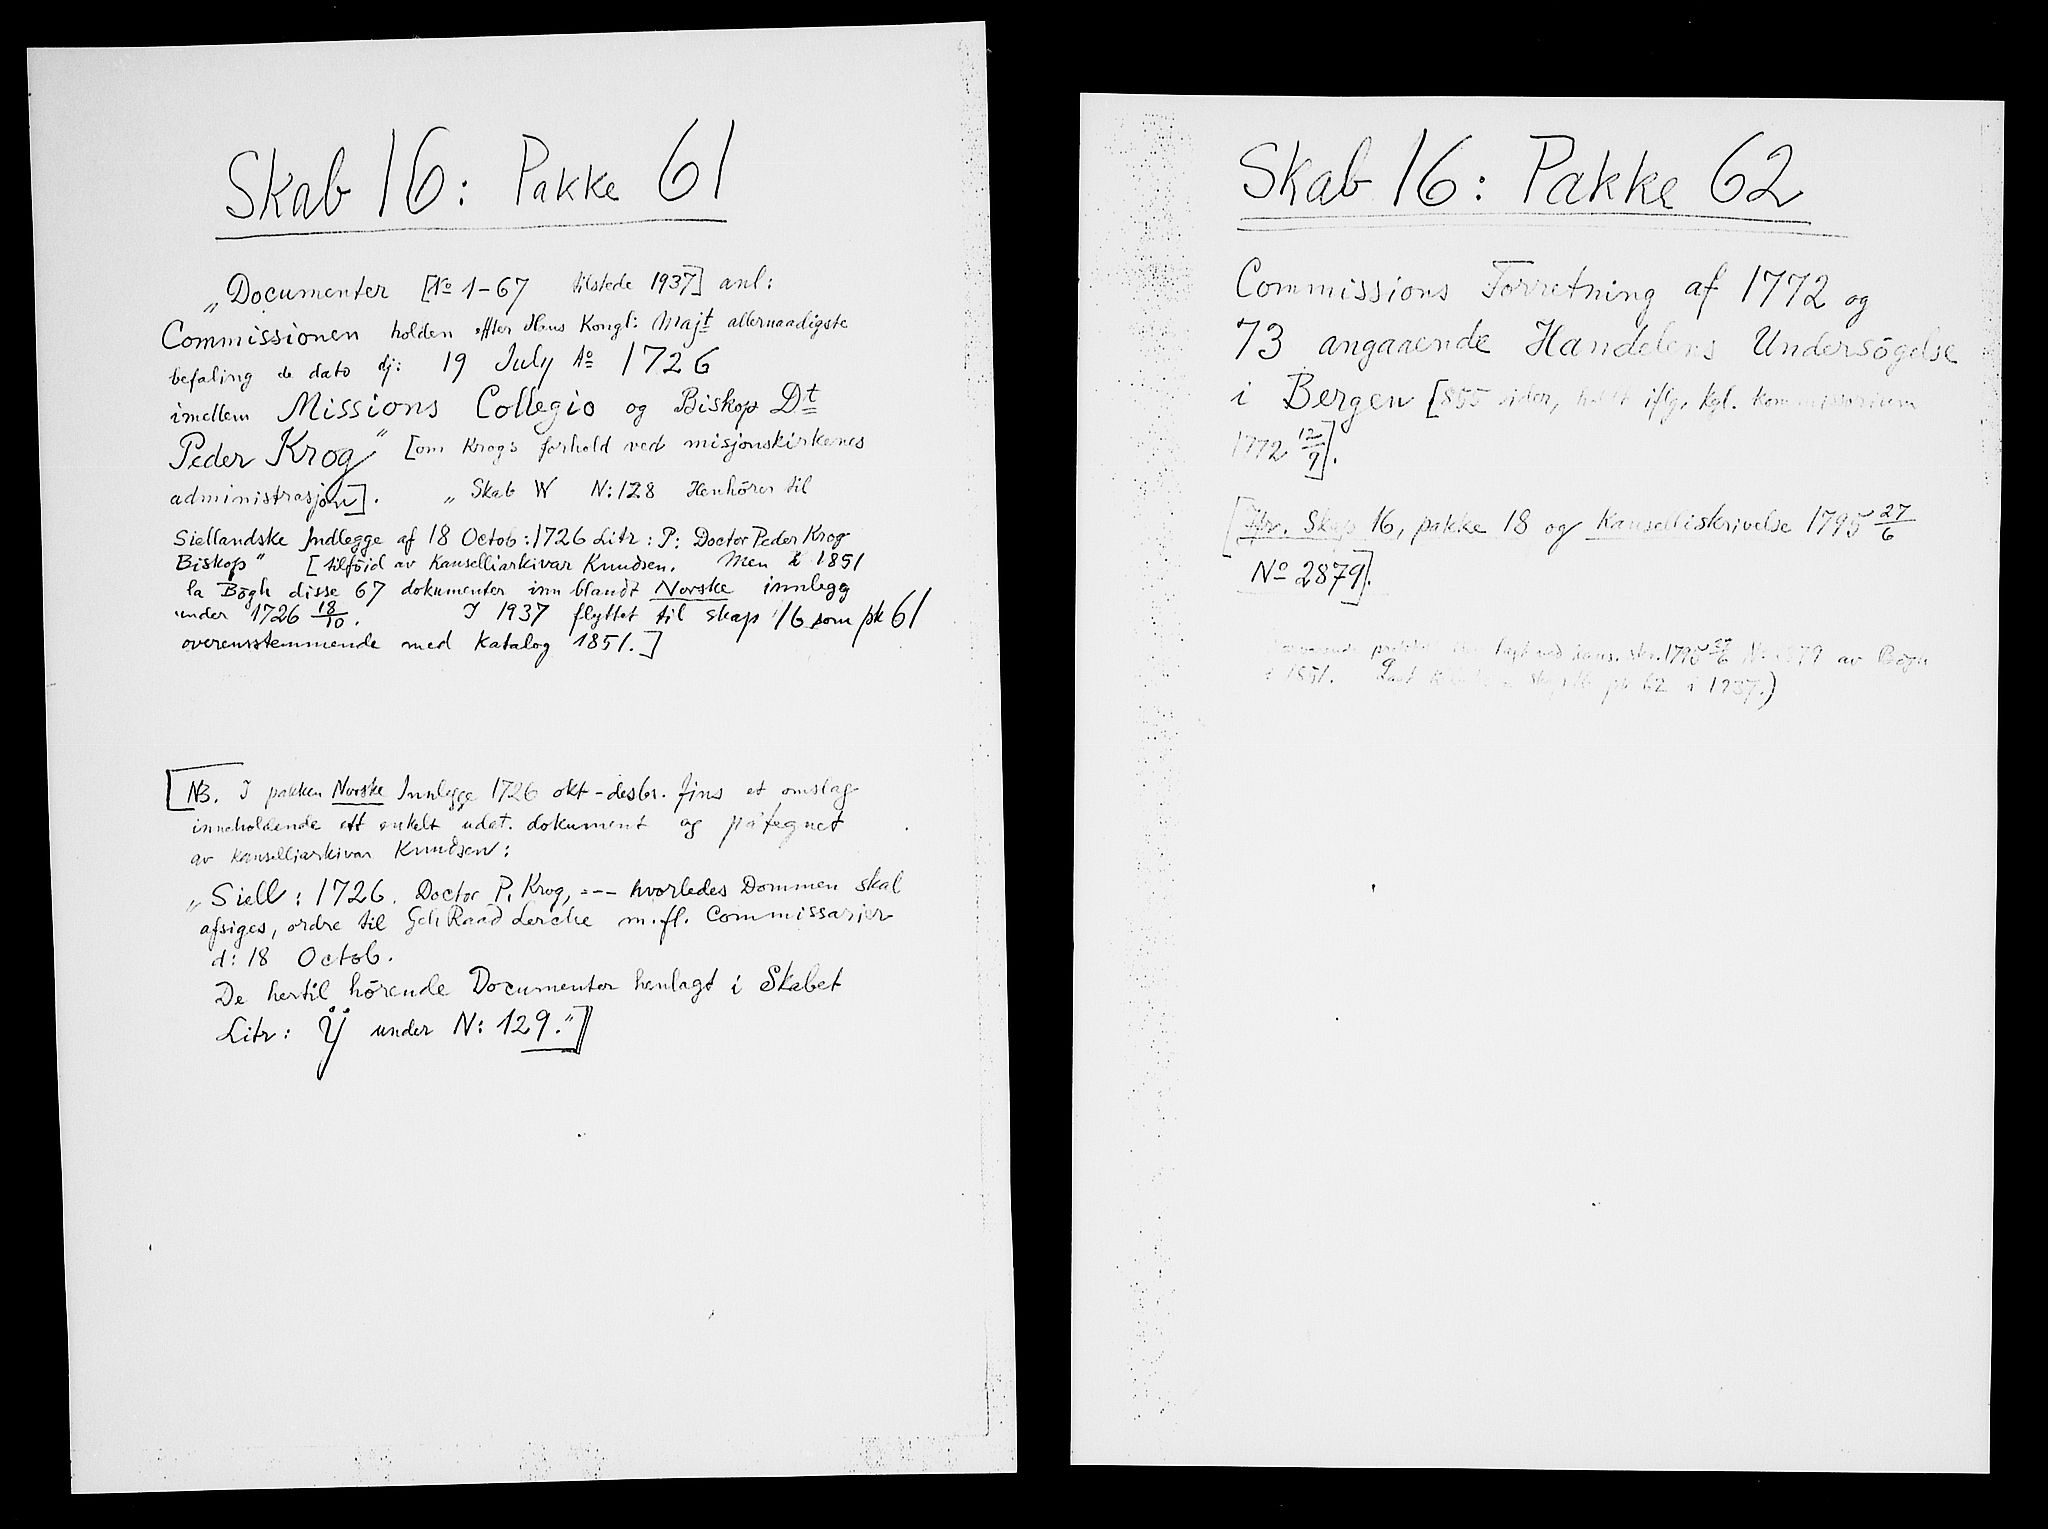 Skab 16: Pakke 61
„Documenter [No 1-67 tilstede 1937] anl:
Commissionen holden efter Hans Kongl: Majt allernaadigste
befaling de dato dj: 19 July Ao 1726
imellem Missions Collegio og Biskop Dt
Peder Krog" [om Krogs forhold ved misjonskirkenes
administrasjon]. „Skab W N: 128 Henhörer til
Siellandske Indlegge af 18 Octob: 1726 Litr: P: Doctor Peder Krog
Biskop" [tilföid av Kanselliarkivar Knudsen. Men i 1851
la Bögh disse 67 dokumenter inn blandt Norske innlegg
under 1726 18/10. I 1937 flyttet til skap 16 som pk 61
overensstemmende med Katalog 1851.]
[NB. I pakken Norske Innlegge 1726 okt-desbr. fins et omslag
inneholdende ett enkelt udat. dokument og påtegnet
av Kanselliarkivar Knudsen:
„Siell: 1726. Doctor P. Krog, --- hvorledes Dommen skal
afsiges, ordre til Geh Raad Lerche m.fl. Commissarier
d: 18 Octob.
De hertil hörende Documenter henlagt i Skabet
Litr: Ÿ under N: 129."]
Skab 16: Pakke 62
Commissions Forretning af 1772 og
73 angaaende Handelens Undersögelse
i Bergen [855 sider, holdt iflg. kgl. kommissorium
1772 12/9].
[Jfr. Skap 16, pakke 18 og Kanselliskrivelse 1795 27/6
No 2879].
pakke lagt ved kans. skr. 1795 27/6 No 2879 av Bögh
i 1851. skap 16 pk 62 i 1937.)